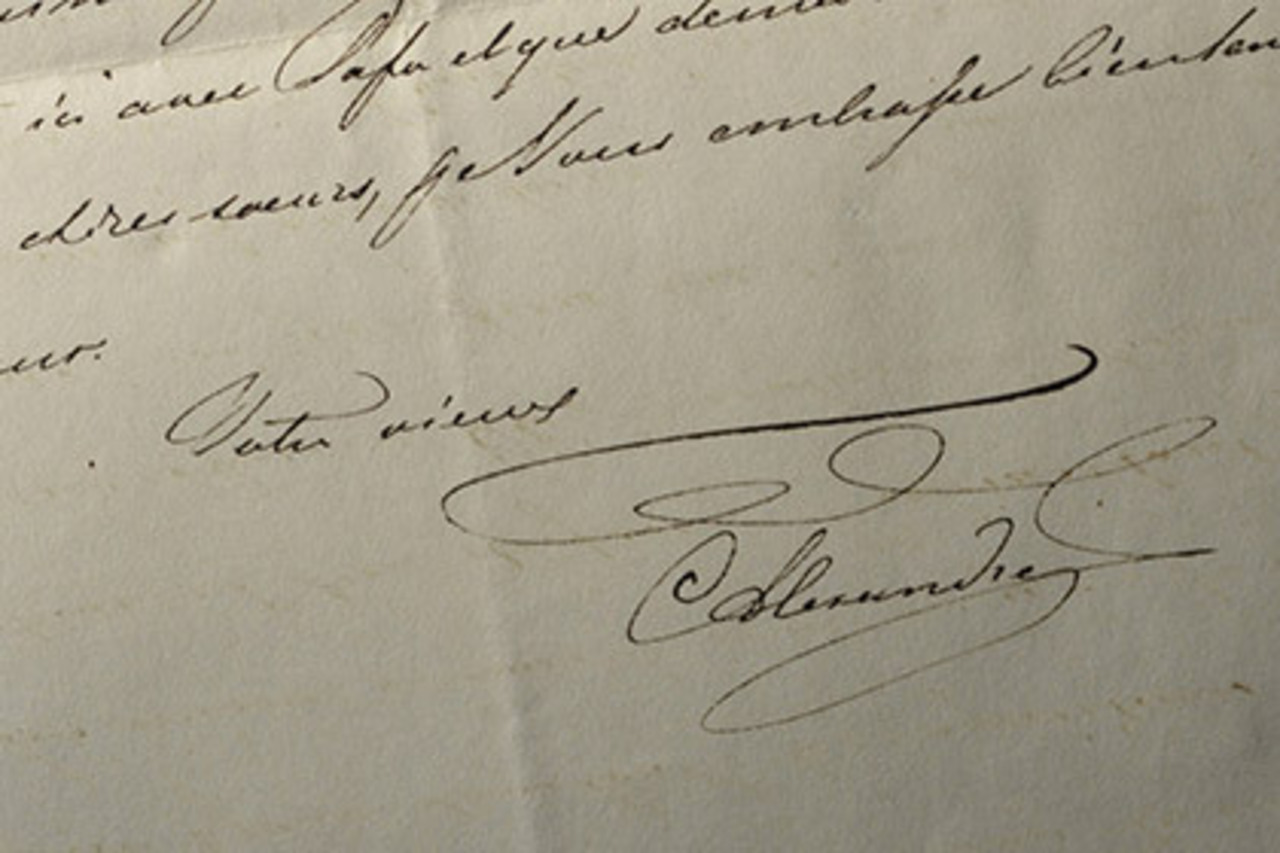 ici avec Papa et que
chères soeurs, je Vous embrasse
Votre vieux
Alexandre